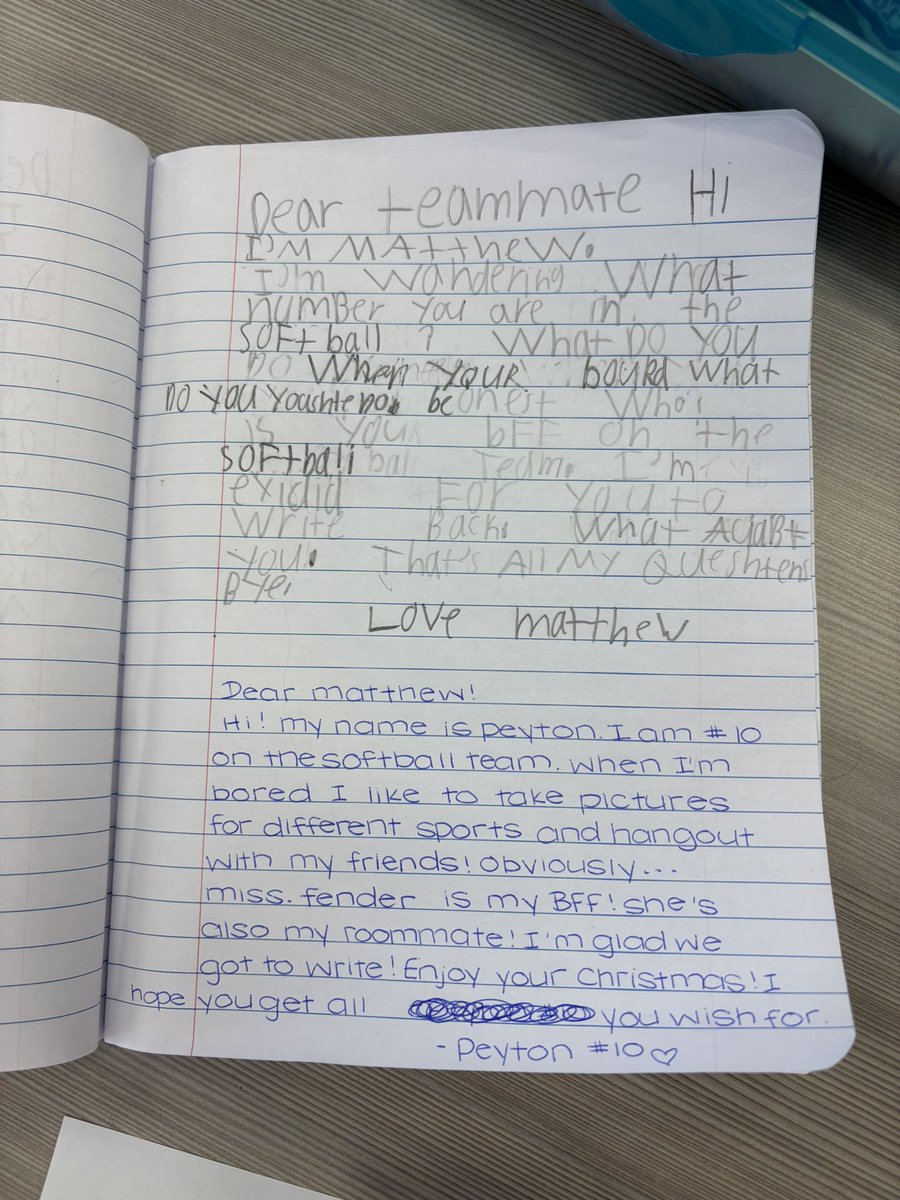 Dear teammate Hi
I'M MAttheW.
I'm wandering What
number you are in the
SOFtball ? What DO YOU
DO When YOUR bourd What
DO YOU be onest Who
is your bFF on the
SOFtball ball Team. I'm
exidid For You to
Write Back. What Aυαβt
you. That's All My Queshtens
Bye.
Love matthew
Dear matthew!
Hi! my name is peyton. I am #10
on the softball team. when I'm
bored I like to take pictures
for different sports and hangout
with my friends! obviously...
miss. fender is my BFF! she's
also my roommate! I'm glad we
got to write! Enjoy your Christmas! I
hope you get all you wish for.
- Peyton #10♡